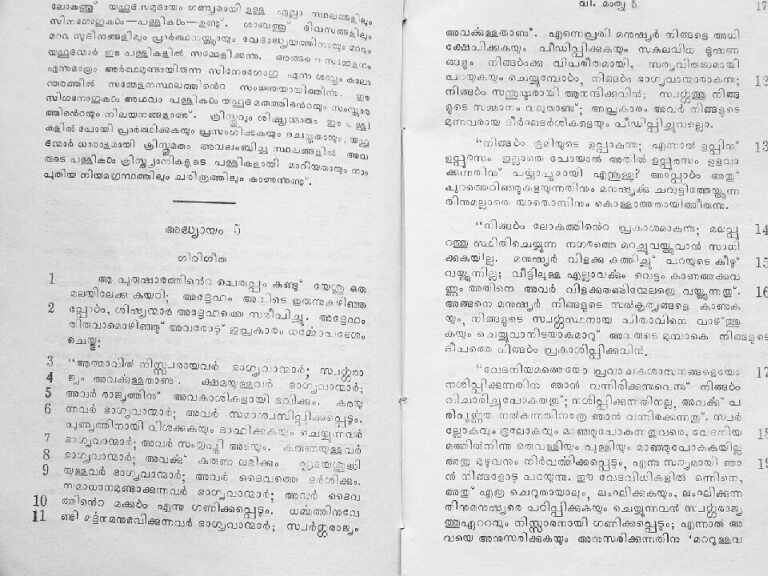 ലോകത്തു് യഹൂദസമുദായം ഗണ്യമായി ഉള്ള എല്ലാ സ്ഥലങ്ങളിലും
സിനഗോഗുകൾ—പള്ളികൾ—ഉണ്ടു്. ശാബത്തു് ദിവസങ്ങളിലും
മററു സുദിനങ്ങളിലും പ്രാർത്ഥനയ്ക്കായും വേദാദ്ധ്യയനത്തിനായും മററും
യഹൂദന്മാർ ഈ പള്ളികളിൽ സമ്മേളിക്കുന്നു. അങ്ങനെ സമ്മേളനം
എന്നുമാത്രം അർത്ഥമുണ്ടായിരുന്ന സിനേഗോഗു് എന്ന ശബ്ദം കാലാ
ന്തരത്തിൽ സമ്മേളനസ്ഥലത്തിൻെറ സംജ്ഞയായിത്തീർന്നു. ഈ
സിനഗോഗുകൾ അഥവാ പള്ളികൾ യഹൂദമതത്തിൻെറയും സംസ്ക്കാര
ത്തിൻെറയും നിലയനങ്ങളാണു്. ക്രിസ്തുവും ശിഷ്യന്മാരും ഈ പള്ളി
കളിൽ പോയി പ്രാർത്ഥിക്കുകയും പ്രസംഗിക്കുകയും ചെയ്തതായും, യഹൂ
ദന്മാർ ധാരാളമായി ക്രിസ്തുമതം അവലംബിച്ച സ്ഥലങ്ങളിൽ അവ
രുടെ പള്ളികൾ ക്രിസ്ത്യാനികളുടെ പള്ളികളായി മാറിയതായും നാം
പുതിയ നിയമഗ്രന്ഥത്തിലും ചരിത്രത്തിലും കാണുന്നുണ്ടു്.
അദ്ധ്യായം 5
ഗിരിഗീത
1 ആ പുരുഷാരത്തിൻെറ പെരുപ്പം കണ്ടു് യേശു ഒരു
മലയിലേക്കു കയറി; അദ്ദേഹം അവിടെ ഇരുന്നുകഴിഞ്ഞ
2 പ്പോൾ, ശിഷ്യന്മാർ അദ്ദേഹത്തെ സമീപിച്ചു. അദ്ദേഹം
തിരുവാമൊഴിഞ്ഞു് അവരോടു് ഇപ്രകാരം ധർമ്മോപദേശം
ചെയ്തു;
3 “ആത്മാവിൽ നിസ്സ്വരായവർ ഭാഗ്യവാന്മാർ; സ്വർഗ്ഗരാ
4 ജ്യം അവർക്കുള്ളതാണു്. ക്ഷമയുള്ളവർ ഭാഗ്യവാന്മാർ;
5 അവർ രാജ്യത്തിനു് അവകാശികളായി ഭവിക്കും. കരയു
6 ന്നവർ ഭാഗ്യവാന്മാർ; അവർ സമാശ്വസിപ്പിക്കപ്പെടും.
പുണ്യത്തിനായി വിശക്കുകയും ദാഹിക്കുകയും ചെയ്യുന്നവർ
7 ഭാഗ്യവാന്മാർ; അവർ സംതൃപ്തി അടയും. കരുണയുള്ളവർ
8 ഭാഗ്യവാന്മാർ; അവർക്കു് കരുണ ലഭിക്കും. ഹൃദയശുദ്ധി
9 യുള്ളവർ ഭാഗ്യവാന്മാർ; അവർ ദൈവത്തെ ദർശിക്കും.
സമാധാനമുണ്ടാക്കുന്നവർ ഭാഗ്യവാന്മാർ; അവർ ദൈവ
10 ത്തിൻെറ മക്കൾ എന്നു ഗണിക്കപ്പെടും. ധർമ്മത്തിനുവേ
11 ണ്ടി മർദ്ദനമനുഭവിക്കുന്നവർ ഭാഗ്യവാന്മാർ; സ്വർഗ്ഗരാജ്യം
വി. മാത്യു 5 17
അവർക്കുള്ളതാണു്. എന്നെപ്രതി മനുഷ്യർ നിങ്ങളെ അധി
ക്ഷേപിക്കുകയും പീഡിപ്പിക്കുകയും സകലവിധ ദൂഷണ
ങ്ങളും നിങ്ങൾക്കു വിപരീതമായി, സത്യവിരുദ്ധമായി
പറയുകയും ചെയ്യുമ്പോൾ, നിങ്ങൾ ഭാഗ്യവാന്മാരാകുന്നു; 12
നിങ്ങൾ സന്തുഷ്ടരായി ആനന്ദിക്കുവിൻ; സ്വർഗ്ഗത്തു നിങ്ങ
ളുടെ സമ്മാനം വലുതാണു്; അപ്രകാരം അവർ നിങ്ങളുടെ
മുന്നവരായ ദീർഘദർശികളെയും പീഡിപ്പിച്ചുവല്ലൊ.
“നിങ്ങൾ ഭൂമിയുടെ ഉപ്പാകുന്നു; എന്നാൽ ഉപ്പിനു് 13
ഉപ്പുരസം ഇല്ലാതെ പോയാൽ അതിൽ ഉപ്പുരസം ഉളവാ
ക്കുന്നതിനു് പര്യാപ്തമായി എന്തുള്ളു? അപ്പോൾ അതു്
പുറത്തെറിഞ്ഞുകളയുന്നതിനും മനുഷ്യർക്കു ചവുട്ടിത്തേയ്ക്കുന്ന
തിനുമല്ലാതെ യാതൊന്നിനും കൊള്ളരുതാതായിത്തീരുന്നു.
“നിങ്ങൾ ലോകത്തിൻെറ പ്രകാശമാകുന്നു; മലപ്പു 14
റത്തു സ്ഥിതിചെയ്യുന്ന നഗരത്തെ മറച്ചുവയ്ക്കുവാൻ സാധി
ക്കുകയില്ല. മനുഷ്യർ വിളക്കു കത്തിച്ചു് പറയുടെ കീഴു് 15
വയ്ക്കുന്നില്ല; വീട്ടിലുള്ള എല്ലാവർക്കും വെട്ടം കാണത്തക്കവ
ണ്ണം അതിനെ അവർ വിളക്കുതണ്ടിന്മേലത്രെ വയ്ക്കുന്നതു്. 16
അങ്ങനെ മനുഷ്യർ നിങ്ങളുടെ സൽകൃത്യങ്ങളെ കാണുക
യും, നിങ്ങളുടെ സ്വർഗ്ഗസ്ഥനായ പിതാവിനെ വാഴ്ത്തു
കയും ചെയ്യുവാനിടയാകുമാറു് അവരുടെ മുമ്പാകെ നിങ്ങളുടെ
ദീപത്തെ നിങ്ങൾ പ്രകാശിപ്പിക്കുവിൻ.
“വേദനിയമത്തെയോ പ്രവാചകശാസനങ്ങളെയോ 17
നശിപ്പിക്കുന്നതിനു ഞാൻ വന്നിരിക്കുന്നുവെന്നു് നിങ്ങൾ
വിചാരിച്ചുപോകരുതു്; നശിപ്പിക്കുന്നതിനല്ല, അവക്കു് പ
രിപൂർണ്ണത നൽകുന്നതിനത്രേ ഞാൻ വന്നിരിക്കുന്നതു്. സ്വർ
ല്ലോകവും ഭൂലോകവും മാഞ്ഞുപോകുന്നതുവരെ, വേദനിയ 18
മത്തിൽനിന്നു ഒരുവള്ളിയും പുള്ളിയും മാഞ്ഞുപോകയില്ല
അതു മുഴുവനും നിർവർത്തിക്കപ്പെടും, എന്നു സത്യമായി ഞാ 19
ൻ നിങ്ങളോടു പറയുന്നു. ഈ വേദവിധികളിൽ ഒന്നിനെ,
അതു് എത്ര ചെറുതായാലും, ലംഘിക്കുകയും, ലംഘിക്കുന്ന
തിനുമനുഷ്യരെ പഠിപ്പിക്കുകയും ചെയ്യുന്നവൻ സ്വർഗ്ഗരാജ്യ
ത്തുഏററവും നിസ്സാരനായി ഗണിക്കപ്പെടും; എന്നാൽ അ
വയെ അനുസരിക്കുകയും അനുസരിക്കുന്നതിനു 'മററുള്ളവ